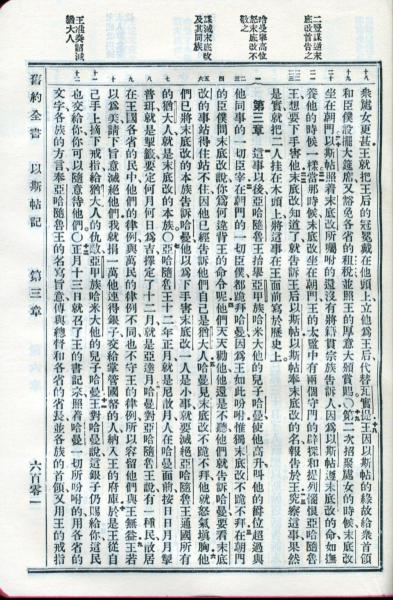 二豎謀逆末
底改首告之
哈曼舉高位
怒末底改不
敬之
謀滅末底改
及其同族
王准奏詔滅
猶大人
十八 衆處女更甚王就把王后的冠冕戴在他頭上立他爲王后代替瓦實提王因以斯帖的緣故給衆首領
十九 和臣僕設擺大筵席又豁免各省的租稅並照王的厚意大頒賞賜〇第二次招聚處女的時候末底改
二十 坐在朝門以斯帖照着末底改所囑咐的還沒有將籍貫宗族告訴人因爲以斯帖遵末底改的命如撫
養他的時候一樣當那時候末底改坐在朝門王的太監中有兩個守門的辟探和提列惱恨亞哈隨魯
王想要下手害他末底改知道了就告訴王后以斯帖以斯帖奉末底改的名報告於王究察這事果然
是實就把二人挂在木頭上將這事在王面前寫於歷史上
第三章 這事以後亞哈隨魯王抬舉亞甲族哈米大他的兒子哈曼使他高升呌他的爵位超過與
他同事的一切臣宰在朝門的一切臣僕都跪拜哈曼因爲王如此吩咐惟獨末底改不跪不拜在朝門
的臣僕問末底改說你爲何違背王的命令呢他們天天勸他他還是不聽他們就告訴哈曼要看末底
改的事站得住站不住因他已經告訴他們自己是猶大人哈曼見末底改不跪不拜他就怒氣填胸他
們已將末底改的本族告訴哈曼他以爲下手害末底改一人是小事就要滅絕亞哈隨魯王通國所有
的猶大人就是末底改的本族〇亞哈隨魯王十二年正月就是尼散月人在哈曼面前按日日月月掣
普珥就是掣籤要定何月何日爲吉擇定了十二月就是亞達月哈曼對亞哈隨魯王說有一種民散居
在王國各省的民中他們的律例與萬民的律例不同也不守王的律例所以容留他們與王無益王若
以爲美請下旨意滅絕他們我就捐一萬他連得銀子交給掌管國帑的人納入王的府庫於是王從自
己手上摘下戒指給猶大人的仇敵亞甲族哈米大他的兒子哈曼王對哈曼說這銀子仍賜給你這民
也交給你你可以隨意待他們〇正月十三日就召了王的書記來照着哈曼一切所吩咐的用各省的
文字各族的方言奉亞哈隨魯王的名寫旨意傳與總督和各省的省長並各族的首領又用王的戒指
舊約全書 以斯帖記 第三章 六百零一